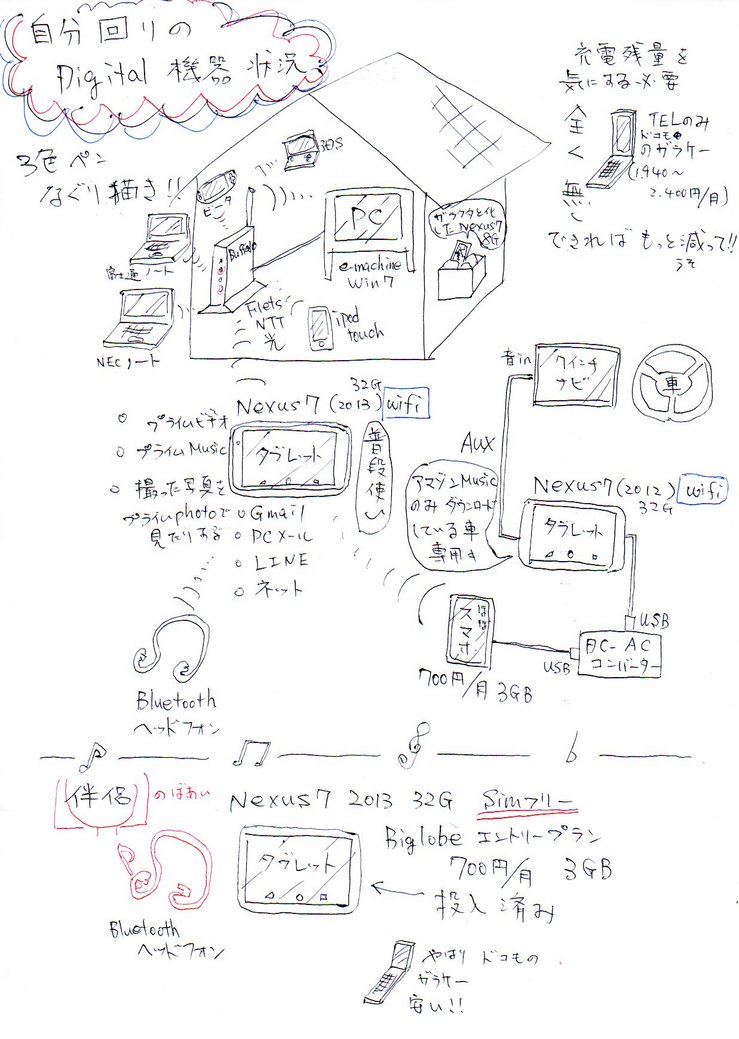 自分回りの
Digital 機器状況
3色ペン
なぐり描き!!
充電残量を
気にする必要
全く無し
TELのみ
ドコモ
のガラケー
(1.940~
2.400円/月)
できればもっと減って!!
うそ
3DS
ビータ
Buffalo
PC
e-machine
Win7
ガラクタと化
した Nexus7
8G
富士通ノート
NECノート
Flets
NTT
光
ipod
touch
Nexus7 (2013) 32G wifi
タブレット
普段使い
○ プライムビデオ
○ プライムMusic
○ 撮った写真を
プライムphotoで
見たりする
○ Gmail
○ PCメール
○ LINE
○ ネット
Bluetooth
ヘッドフォン
音in
7インチ
ナビ
車
AUX
アマゾンMusic
のみ ダウンロード
している車
専用
Nexus7 (2012) wifi
32G
タブレット
USB
DC-AC
コンバーター
USB
ほぼ
スマホ
700円/月 3GB
伴侶のばあい
Nexus7 2013 32G Simフリー
タブレット
Biglobe エントリープラン
700円/月 3GB
投入済み
Bluetooth
ヘッドフォン
やはり ドコモの
ガラケー
安い!!